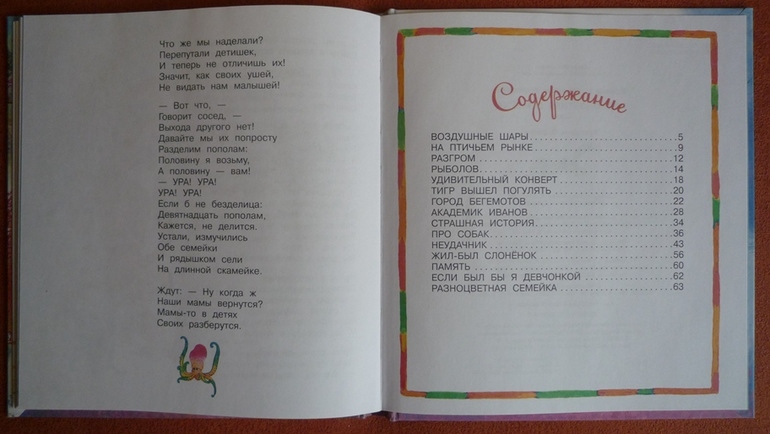 Что же мы наделали?
Перепутали детишек,
И теперь не отличишь их!
Значит, как своих ушей,
Не видать нам малышей!
— Вот что, —
Говорит сосед, —
Выхода другого нет!
Давайте мы их попросту
Разделим пополам:
Половину я возьму,
А половину — вам!
— УРА! УРА!
УРА! УРА!
Если б не безделица:
Девятнадцать пополам,
Кажется, не делится.
Устали, измучились
Обе семейки
И рядышком сели
На длинной скамейке.
Ждут: — Ну когда ж
Наши мамы вернутся?
Мамы-то в детях
Своих разберутся.
Содержание
ВОЗДУШНЫЕ ШАРЫ 5
НА ПТИЧЬЕМ РЫНКЕ 9
РАЗГРОМ 12
РЫБОЛОВ 14
УДИВИТЕЛЬНЫЙ КОНВЕРТ 18
ТИГР ВЫШЕЛ ПОГУЛЯТЬ 20
ГОРОД БЕГЕМОТОВ 22
АКАДЕМИК ИВАНОВ 28
СТРАШНАЯ ИСТОРИЯ 34
ПРО СОБАК 36
НЕУДАЧНИК 43
ЖИЛ-БЫЛ СЛОНЁНОК 56
ПАМЯТЬ 60
ЕСЛИ БЫЛ БЫ Я ДЕВЧОНКОЙ 62
РАЗНОЦВЕТНАЯ СЕМЕЙКА 63